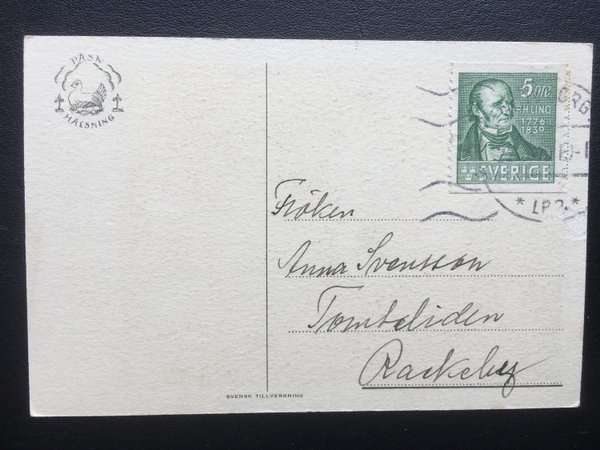 PÅSK
HÄLSNING
5 ÖRE
P. H. LING
1776
1839
SVERIGE
* LBR *
Fröken
Anna Svensson
Tombeliden
Rackeby
SVENSK TILLVERKNING